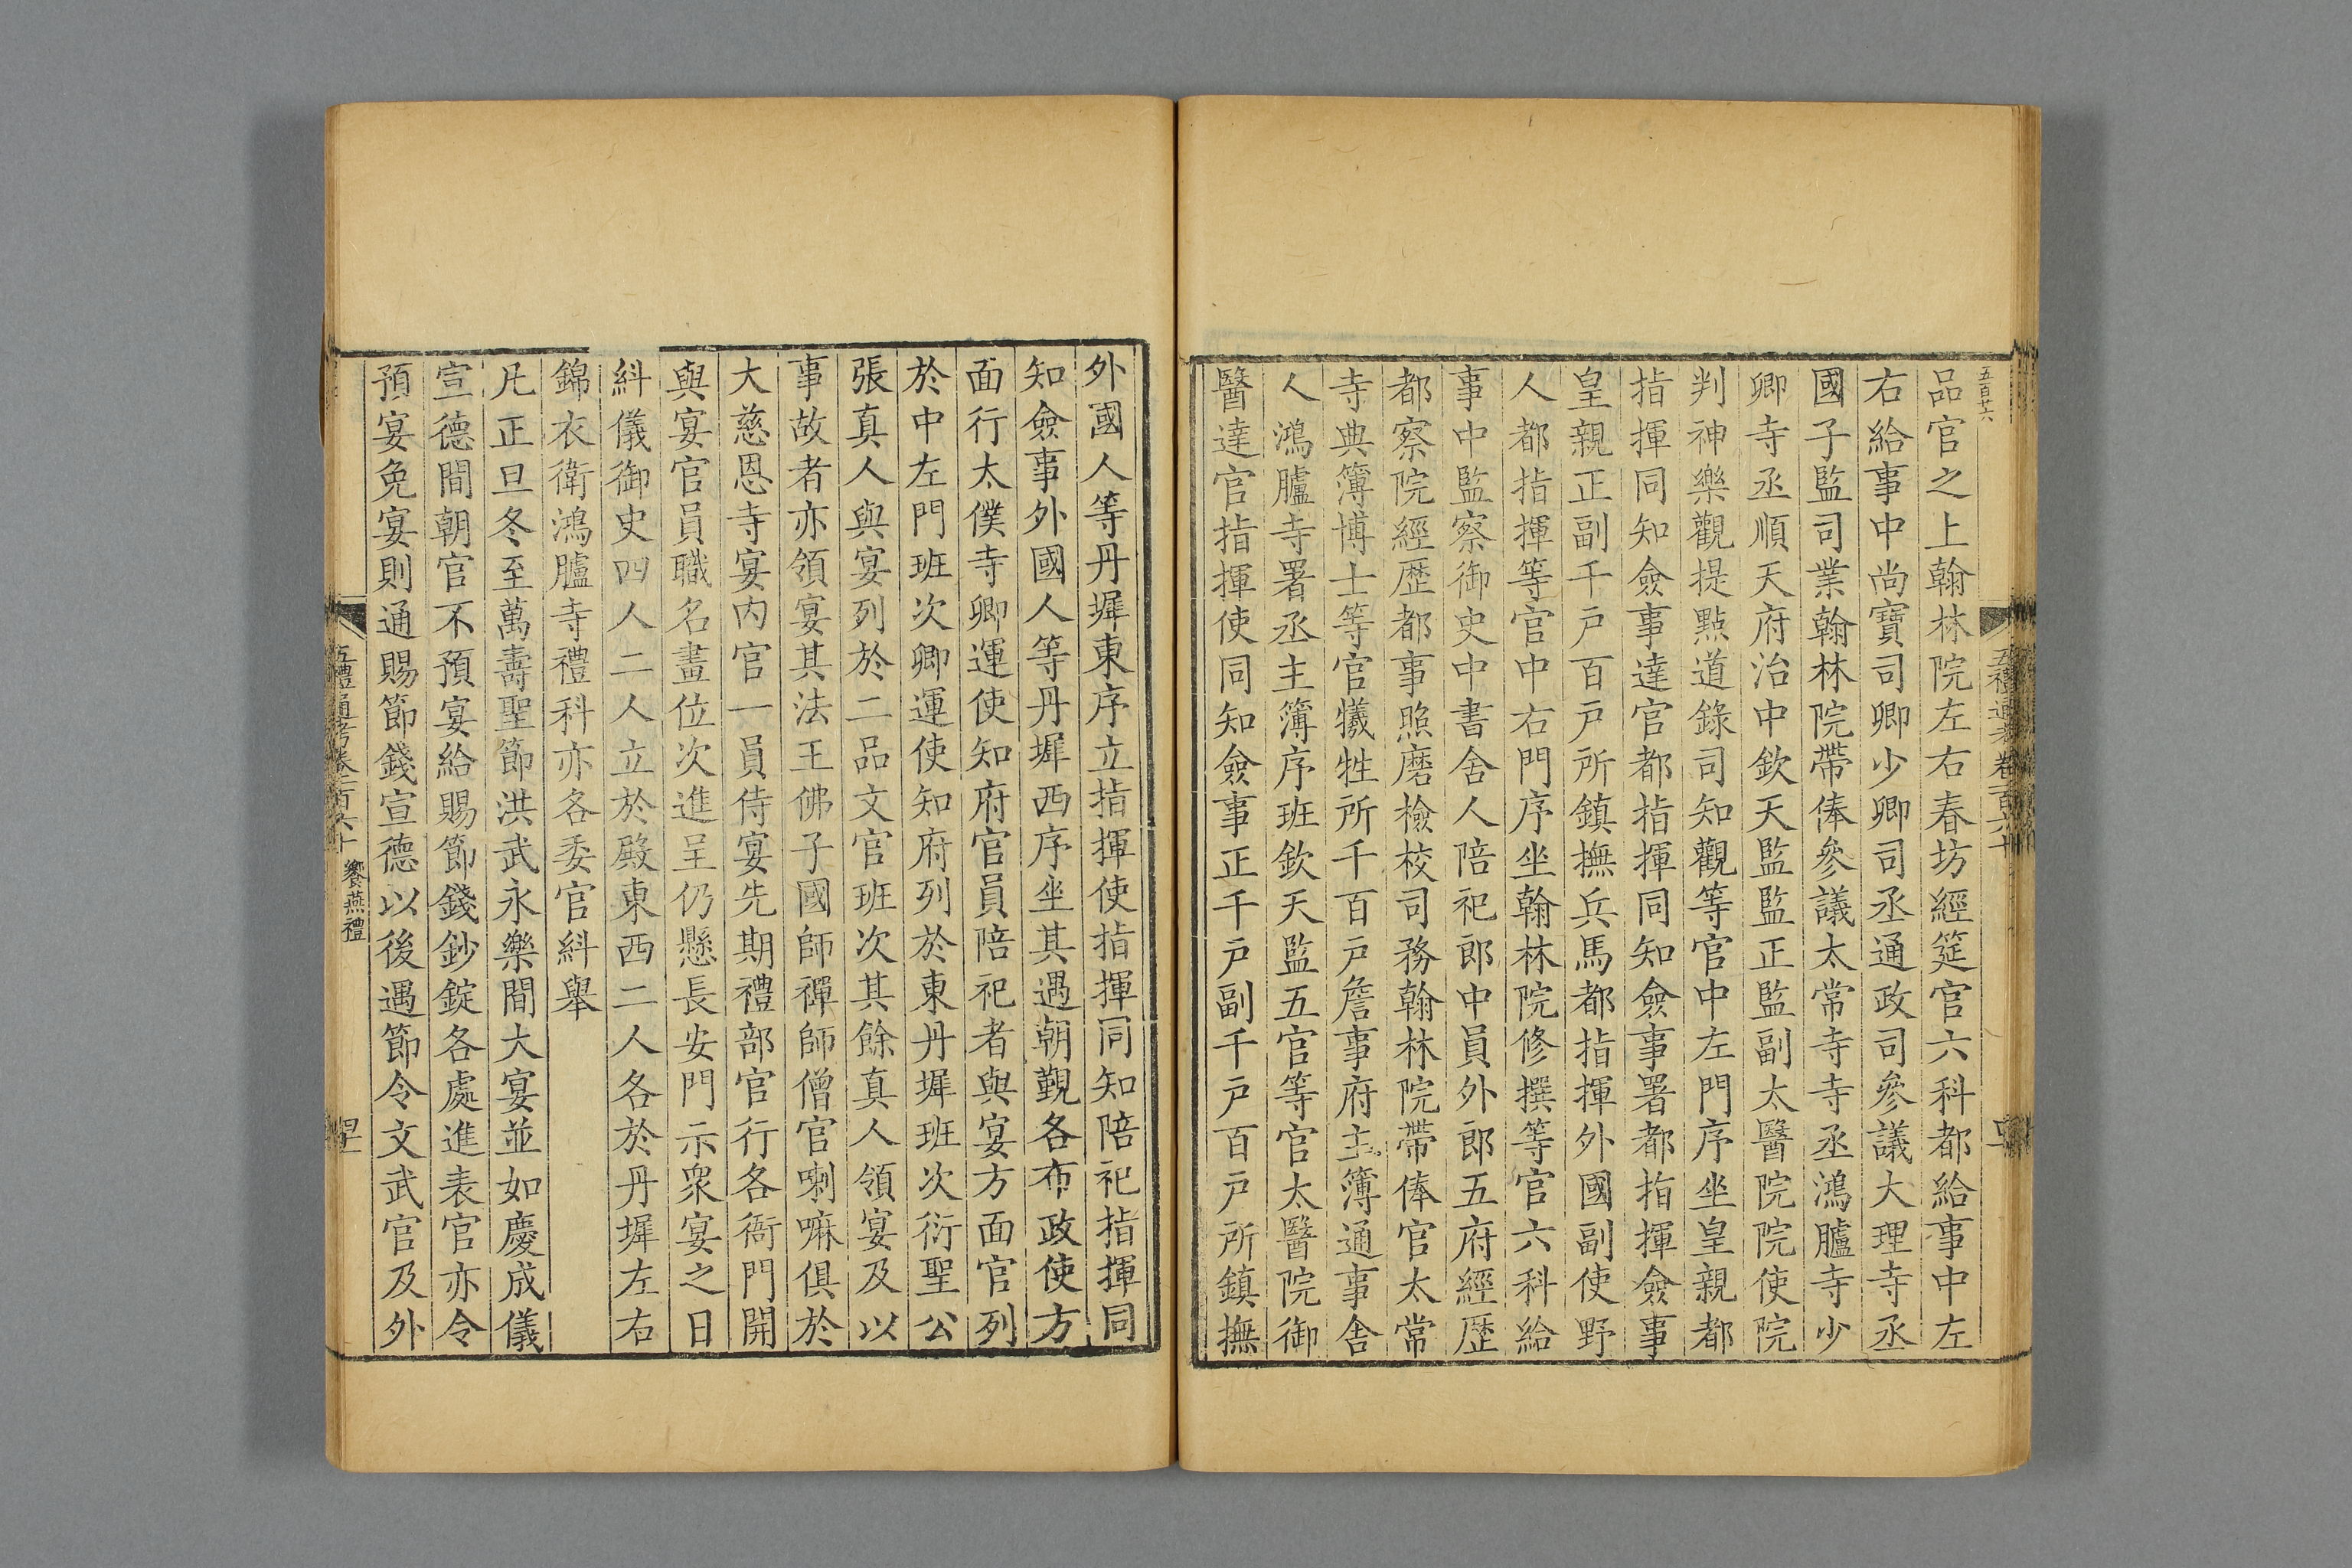 五百廿六
品官之上翰林院左右春坊經筵官六科都給事中左
右給事中尚寶司卿少卿司丞通政司參議大理寺丞
國子監司業翰林院帶俸參議太常寺寺丞鴻臚寺少
卿寺丞順天府治中欽天監監正監副太醫院院使院
判神樂觀提點道錄司知觀等官中左門序坐皇親都
指揮同知僉事達官都指揮同知僉事署都指揮僉事
皇親正副千戶百戶所鎮撫兵馬都指揮外國副使野
人都指揮等官中右門序坐翰林院修撰等官六科給
事中監察御史中書舍人陪祀郎中員外郎五府經歷
都察院經歷都事照磨檢校司務翰林院帶俸官太常
寺典簿博士等官犧牲所千百戶詹事府主簿通事舍
人鴻臚寺署丞主簿序班欽天監五官等官太醫院御
醫達官指揮使同知僉事正千戶副千戶百戶所鎮撫
外國人等丹墀東序立指揮使指揮同知陪祀指揮同
知僉事外國人等丹墀西序坐其遇朝覲各布政使方
面行太僕寺卿運使知府官員陪祀者與宴方面官列
於中左門班次卿運使知府列於東丹墀班次衍聖公
張真人與宴列於二品文官班次其餘真人領宴及以
事故者亦領宴其法王佛子國師禪師僧官喇嘛俱於
大慈恩寺宴内官一員侍宴先期禮部官行各衙門開
與宴官員職名畫位次進呈仍懸長安門示衆宴之日
糾儀御史四人二人立於殿東西二人各於丹墀左右
錦衣衛鴻臚寺禮科亦各委官糾舉
凡正旦冬至萬壽聖節洪武永樂間大宴並如慶成儀
宣德間朝官不預宴給賜節錢鈔錠各處進表官亦令
預宴免宴則通賜節錢宣德以後遇節令文武官及外
五禮通考卷一百六十 饗燕禮